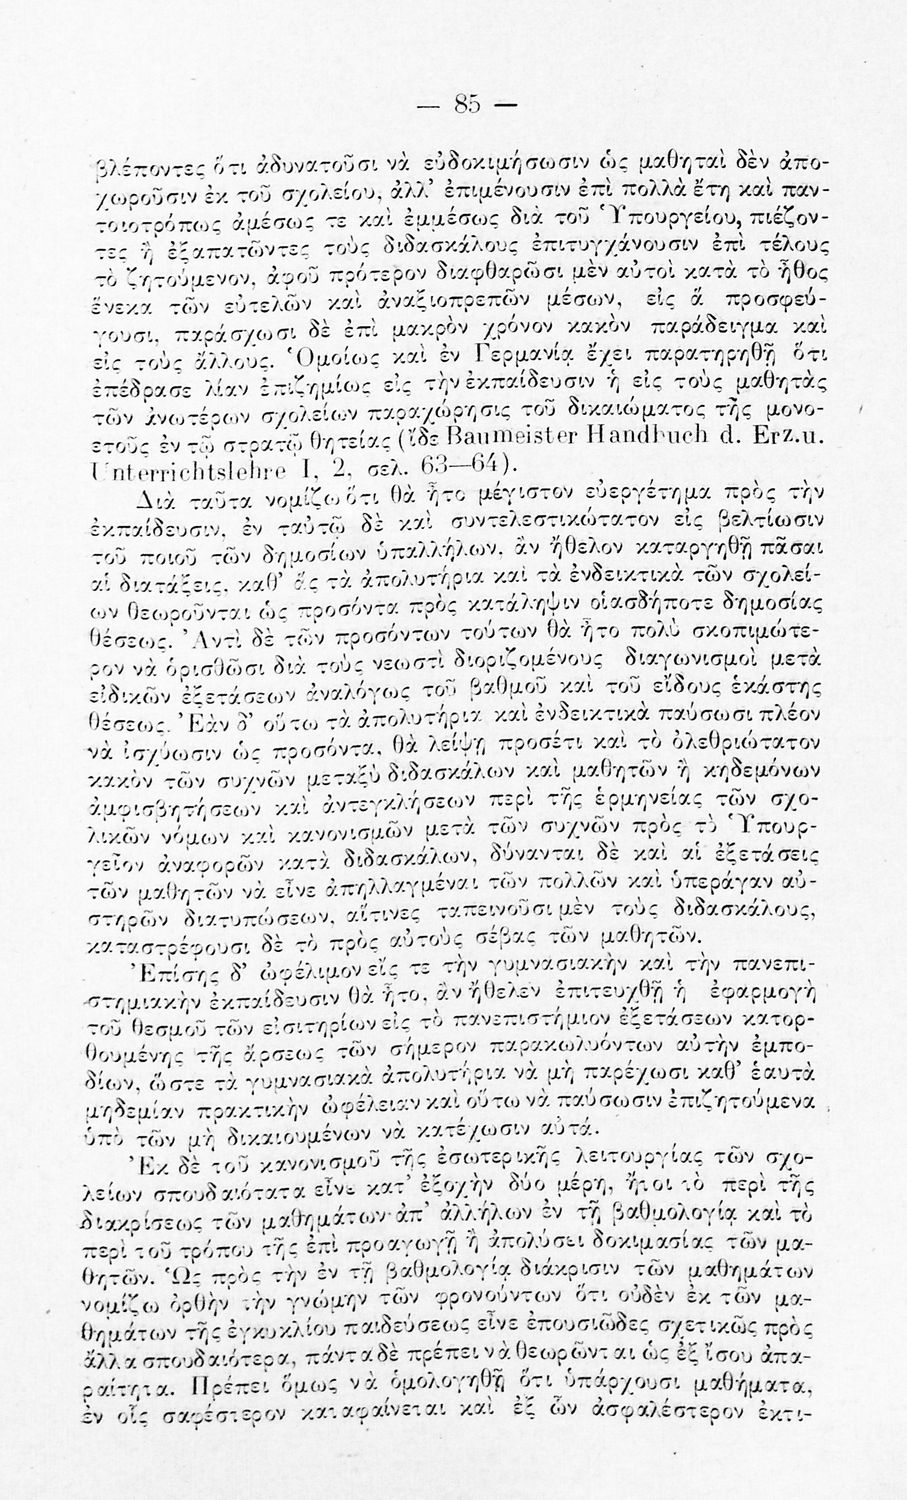 — 85 —
βλέποντες ὅτι ἀδυνατοῦσι νὰ εὐδοκιμήσωσιν ὡς μαθηταὶ δὲν ἀπο-
χωροῦσιν ἐκ τοῦ σχολείου, ἀλλ’ ἐπιμένουσιν ἐπὶ πολλὰ ἔτη καὶ παν-
τοιοτρόπως ἀμέσως τε καὶ ἐμμέσως διὰ τοῦ Ὑπουργείου, πιέζον-
τες ἢ ἐξαπατῶντες τοὺς διδασκάλους ἐπιτυγχάνουσιν ἐπὶ τέλους
τὸ ζητούμενον, ἀφοῦ πρότερον διαφθαρῶσι μὲν αὐτοὶ κατὰ τὸ ἦθος
ἕνεκα τῶν εὐτελῶν καὶ ἀναξιοπρεπῶν μέσων, εἰς ἃ προσφεύ-
γουσι, παράσχωσι δὲ ἐπὶ μακρὸν χρόνον κακὸν παράδειγμα καὶ
εἰς τοὺς ἄλλους. Ὁμοίως καὶ ἐν Γερμανίᾳ ἔχει παρατηρηθῆ ὅτι
ἐπέδρασε λίαν ἐπιζημίως εἰς τὴν ἐκπαίδευσιν ἡ εἰς τοὺς μαθητὰς
τῶν ἀνωτέρων σχολείων παραχώρησις τοῦ δικαιώματος τῆς μονο-
ετοῦς ἐν τῷ στρατῷ θητείας (ἴδε Baumeister Handbuch d. Erz.u.
Unterrichtslehre I, 2, σελ. 63—64).
Διὰ ταῦτα νομίζω ὅτι θὰ ἦτο μέγιστον εὐεργέτημα πρὸς τὴν
ἐκπαίδευσιν, ἐν ταὐτῷ δὲ καὶ συντελεστικώτατον εἰς βελτίωσιν
τοῦ ποιοῦ τῶν δημοσίων ὑπαλλήλων, ἂν ἤθελον καταργηθῆ πᾶσαι
αἱ διατάξεις, καθ’ ἃς τὰ ἀπολυτήρια καὶ τὰ ἐνδεικτικὰ τῶν σχολεί-
ων θεωροῦνται ὡς προσόντα πρὸς κατάληψιν οἱασδήποτε δημοσίας
θέσεως. Ἀντὶ δὲ τῶν προσόντων τούτων θὰ ἦτο πολὺ σκοπιμώτε-
ρον νὰ ὁρισθῶσι διὰ τοὺς νεωστὶ διοριζομένους διαγωνισμοὶ μετὰ
εἰδικῶν ἐξετάσεων ἀναλόγως τοῦ βαθμοῦ καὶ τοῦ εἴδους ἑκάστης
θέσεως. Ἐὰν δ’ οὕτω τὰ ἀπολυτήρια καὶ ἐνδεικτικὰ παύσωσι πλέον
νὰ ἰσχύωσιν ὡς προσόντα, θὰ λείψῃ προσέτι καὶ τὸ ὀλεθριώτατον
κακὸν τῶν συχνῶν μεταξὺ διδασκάλων καὶ μαθητῶν ἢ κηδεμόνων
ἀμφισβητήσεων καὶ ἀντεγκλήσεων περὶ τῆς ἑρμηνείας τῶν σχο-
λικῶν νόμων καὶ κανονισμῶν μετὰ τῶν συχνῶν πρὸς τὸ Ὑπουρ-
γεῖον ἀναφορῶν κατὰ διδασκάλων, δύνανται δὲ καὶ αἱ ἐξετάσεις
τῶν μαθητῶν νὰ εἶνε ἀπηλλαγμέναι τῶν πολλῶν καὶ ὑπεράγαν αὐ-
στηρῶν διατυπώσεων, αἵτινες ταπεινοῦσι μὲν τοὺς διδασκάλους,
καταστρέφουσι δὲ τὸ πρὸς αὐτοὺς σέβας τῶν μαθητῶν.
Ἐπίσης δ’ ὠφέλιμον εἴς τε τὴν γυμνασιακὴν καὶ τὴν πανεπι-
στημιακὴν ἐκπαίδευσιν θὰ ἦτο, ἂν ἤθελεν ἐπιτευχθῆ ἡ ἐφαρμογὴ
τοῦ θεσμοῦ τῶν εἰσιτηρίων εἰς τὸ πανεπιστήμιον ἐξετάσεων κατορ-
θουμένης τῆς ἄρσεως τῶν σήμερον παρακωλυόντων αὐτὴν ἐμπο-
δίων, ὥστε τὰ γυμνασιακὰ ἀπολυτήρια νὰ μὴ παρέχωσι καθ’ ἑαυτὰ
μηδεμίαν πρακτικὴν ὠφέλειαν καὶ οὕτω νὰ παύσωσιν ἐπιζητούμενα
ὑπὸ τῶν μὴ δικαιουμένων νὰ κατέχωσιν αὐτά.
Ἐκ δὲ τοῦ κανονισμοῦ τῆς ἐσωτερικῆς λειτουργίας τῶν σχο-
λείων σπουδαιότατα εἶνε κατ’ ἐξοχὴν δύο μέρη, ἤτοι τὸ περὶ τῆς
διακρίσεως τῶν μαθημάτων ἀπ’ ἀλλήλων ἐν τῇ βαθμολογίᾳ καὶ τὸ
περὶ τοῦ τρόπου τῆς ἐπὶ προαγωγῇ ἢ ἀπολύσει δοκιμασίας τῶν μα-
θητῶν. Ὡς πρὸς τὴν ἐν τῇ βαθμολογίᾳ διάκρισιν τῶν μαθημάτων
νομίζω ὀρθὴν τὴν γνώμην τῶν φρονούντων ὅτι οὐδὲν ἐκ τῶν μα-
θημάτων τῆς ἐγκυκλίου παιδεύσεως εἶνε ἐπουσιῶδες σχετικῶς πρὸς
ἄλλα σπουδαιότερα, πάντα δὲ πρέπει νὰ θεωρῶνται ὡς ἐξ ἴσου ἀπα-
ραίτητα. Πρέπει ὅμως νὰ ὁμολογηθῇ ὅτι ὑπάρχουσι μαθήματα,
ἐν οἷς σαφέστερον καταφαίνεται καὶ ἐξ ὧν ἀσφαλέστερον ἐκτι-